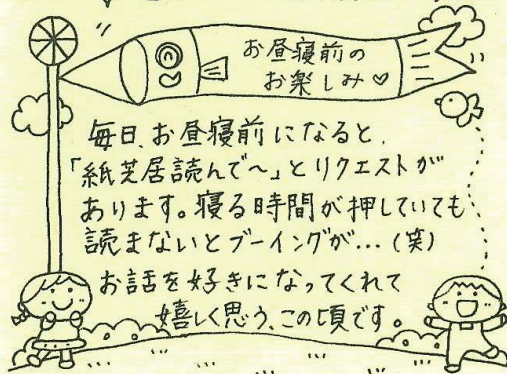 お昼寝前の
お楽しみ♡
毎日、お昼寝前になると、
「紙芝居読んで～」とリクエストが
あります。寝る時間が押していても
読まないとブーイングが…(笑)
お話を好きになってくれて
嬉しく思う、この頃です。